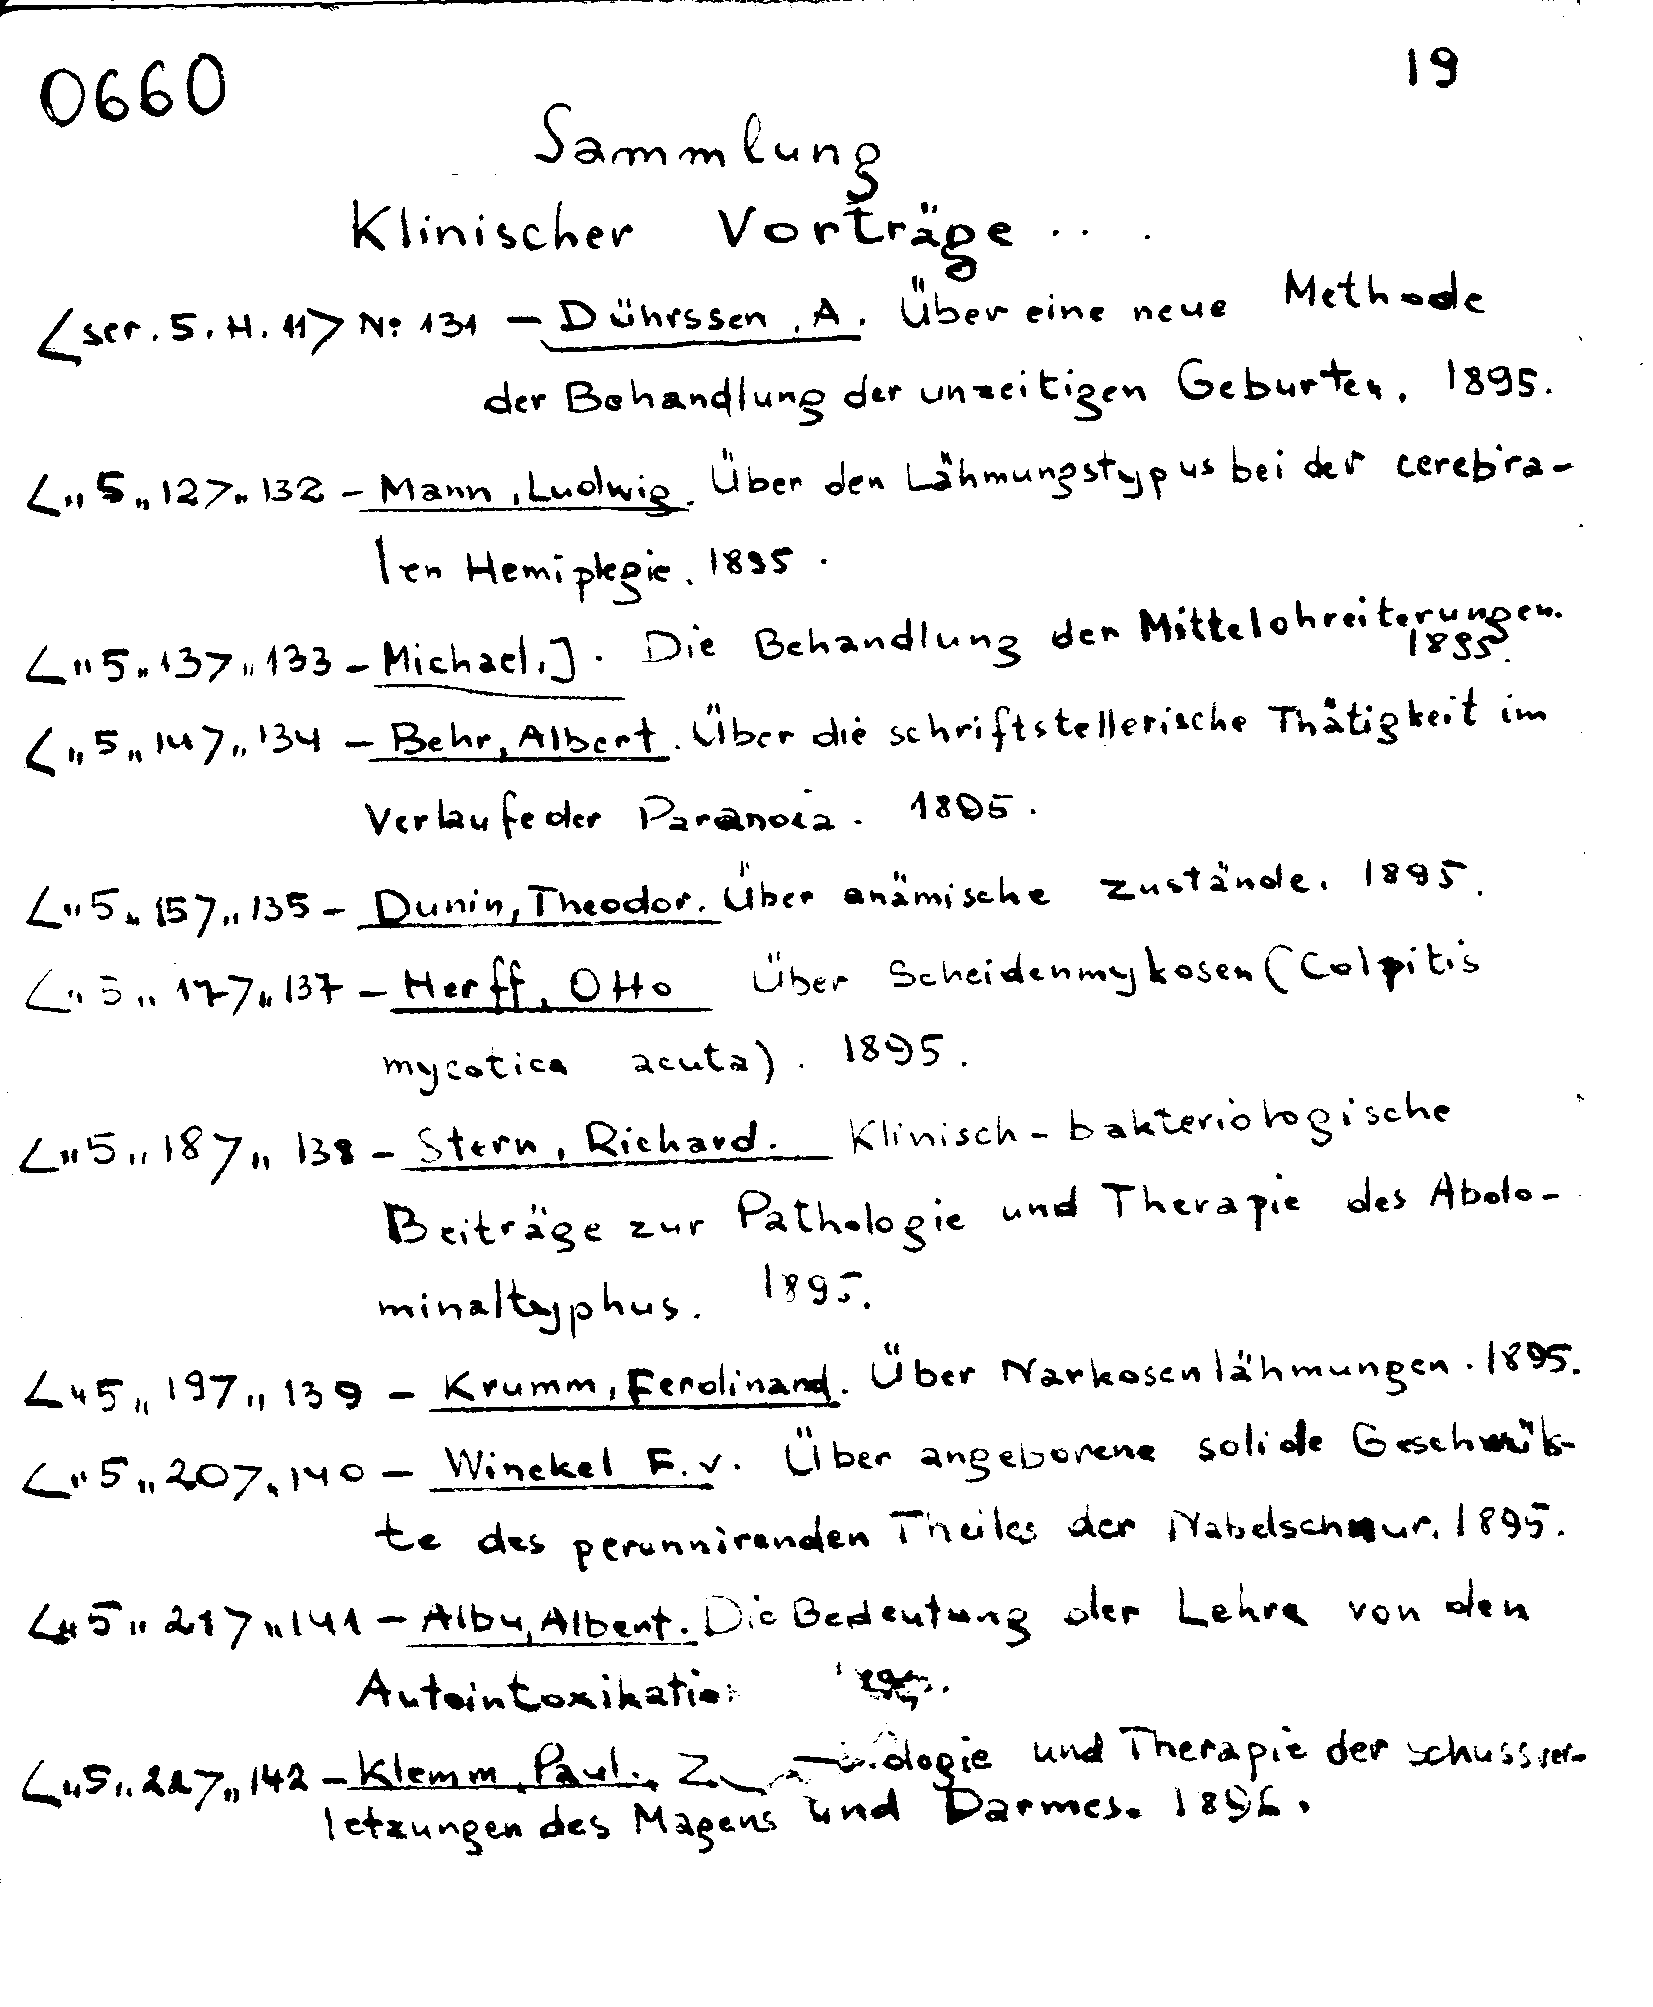 0660
19
Sammlung
Klinischer Vorträge . . .
<ser. 5. H. 11> No 131 — Dührssen, A. Über eine neue Methode
der Behandlung der unzeitigen Geburten. 1895.
<„ 5 „ 12> „ 132 — Mann, Ludwig. Über den Lähmungstypus bei der cerebra-
len Hemiplegie. 1895.
<„ 5 „ 13> „ 133 — Michael, J. Die Behandlung der Mittelohreiterungen.
1895.
<„ 5 „ 14> „ 134 — Behr, Albert. Über die schriftstellerische Thätigkeit im
Verlaufe der Paranoia. 1895.
<„ 5 „ 15> „ 135 — Dunin, Theodor. Über anämische zustände. 1895.
<„ 5 „ 17> „ 137 — Herff, Otto Über Scheidenmykosen (Colpitis
mycotica acuta). 1895.
<„ 5 „ 18> „ 138 — Stern, Richard. Klinisch-bakteriologische
Beiträge zur Pathologie und Therapie des Abdo-
minaltyphus. 1895.
<„ 5 „ 19> „ 139 — Krumm, Ferdinand. Über Narkosenlähmungen. 1895.
<„ 5 „ 20> „ 140 — Winckel F. v. Über angeborene solide
te des perennirenden Theiles der Nabelschnur. 1895.
<„ 5 „ 21> „ 141 — Albu, Albert. Die Bedeutung der Lehre von den
<„ 5 „ 22> „ 142 — Klemm, Paul. und Therapie der schussver-
letzungen des Magens und Darmes. 1896.